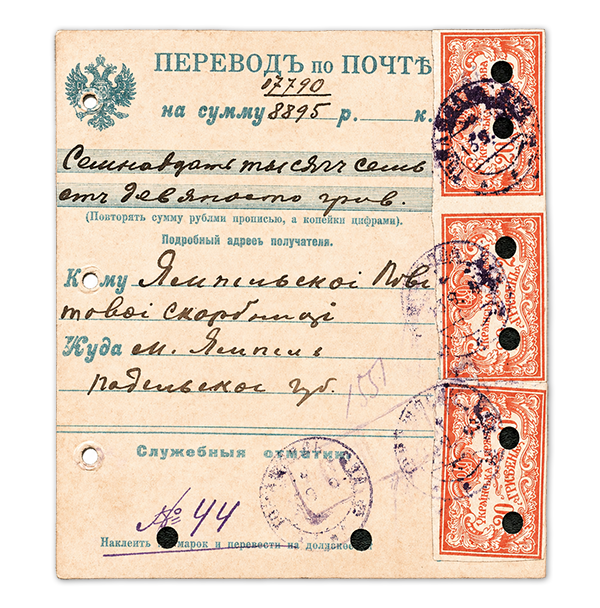 ПЕРЕВОДЪ по ПОЧТѢ
17790
на сумму 8895 р. к.
Семнадцать тысяч семь
стъ девяносто грив.
(Повторять сумму рублями прописью, а копейки цифрами).
Подробный адресъ получателя.
Кому Ямпільскоі Пові
товоі скарбниці
Куда м. Ямпіль
подольскоі губ.
1551
Служебныя отмѣтки
№ 44
Наклеить марок и перевести на должность
УКРАЇНСЬКА
20 ГРИВЕНЬ